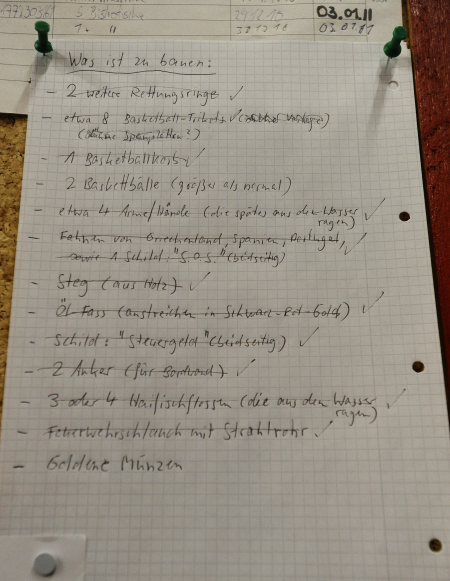 03.01.11
1. "
Was ist zu bauen:
- 2 weitere Rettungsringe ✓
- etwa 8 Basketball-Trikots ✓
- 1 Basketballkorb ✓
- 2 Basketbälle (größer als normal)
- etwa 4 Arme/Hände (die später aus dem Wasser ragen) ✓
- Fahnen von Griechenland, Spanien, Portugal, ✓
sowie 1 Schild: "S.O.S." (beidseitig)
- Steg (aus Holz) ✓
- Öl Fass (anstreichen in Schwarz-Rot-Gold) ✓
- Schild: "Steuergeld" (beidseitig) ✓
- 2 Anker (für Bordwand) ✓
- 3 oder 4 Haifischflossen (die aus dem Wasser ragen) ✓
- Feuerwehrschlauch mit Strahlrohr ✓
- Goldene Münzen